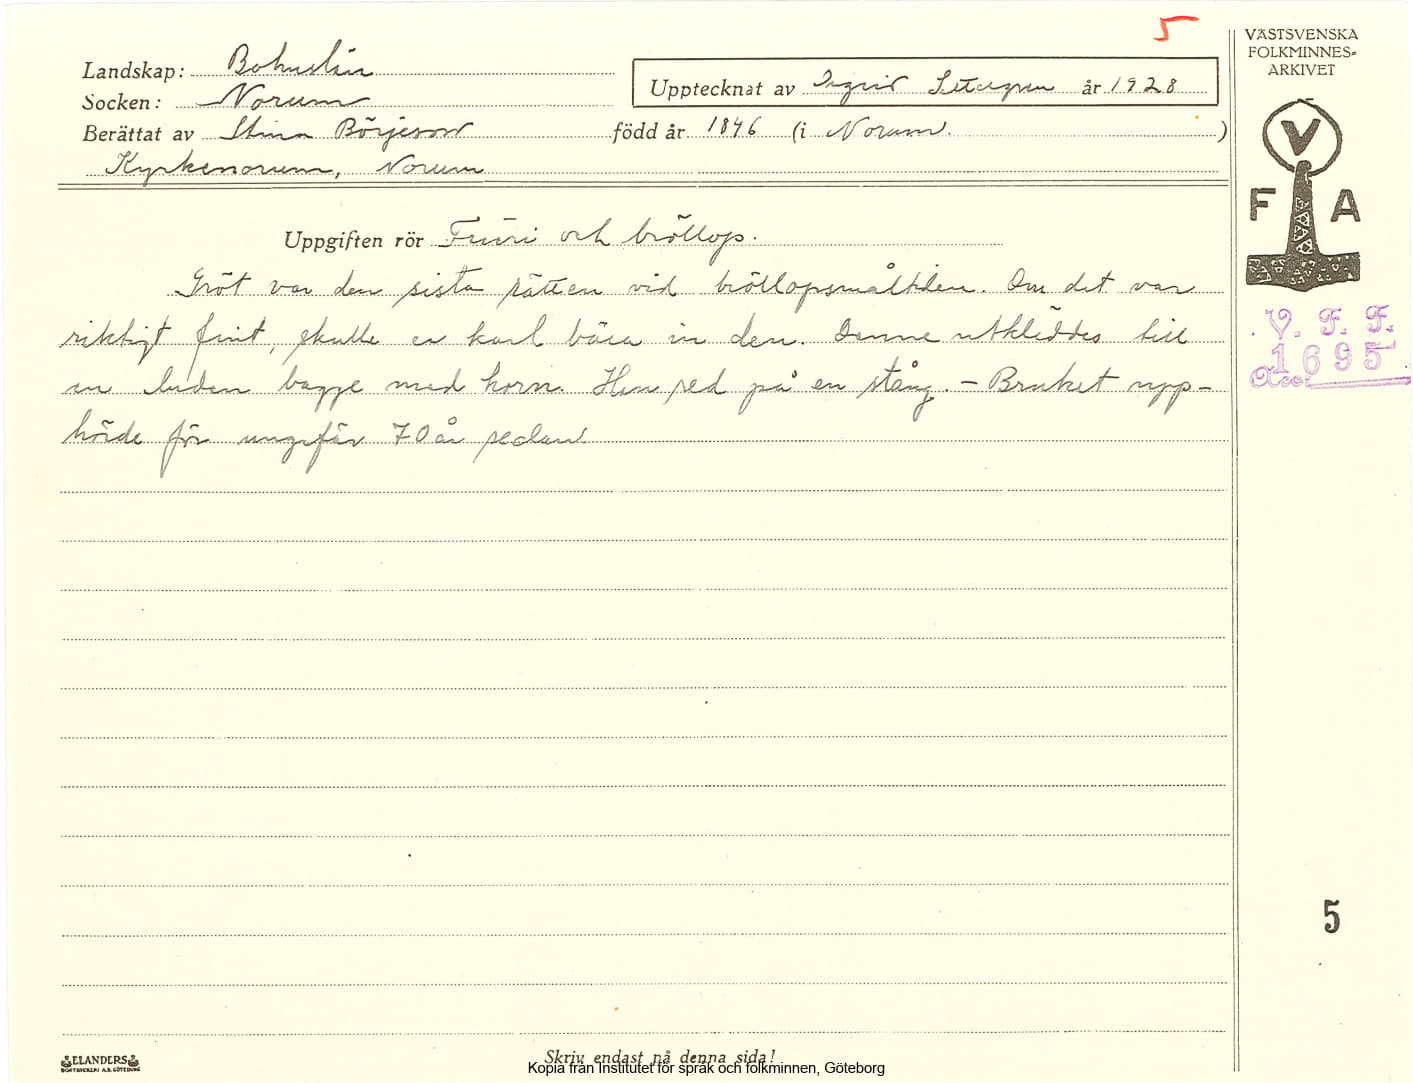 5
VÄSTSVENSKA
FOLKMINNES-
ARKIVET
Landskap: Bohuslän
Upptecknat av Ingrid år 1928
Socken: Norum
Berättat av Stina Börjeson född år 1846 (i Norum.)
Kyrkenorum, Norum
V
F A
Uppgiften rör Frieri och bröllop.
Gröt var den sista rätten vid bröllopsmåltiden. Om det var
riktigt fint, skulle en karl bära in den. Denne utkläddes till
en luden bagge med horn. Han red på en stång. – Bruket upp-
hörde för ungefär 70 år sedan
V. F. F.
Acc. 1695
5
ELANDERS
BOKTRYCKERI A.B. GÖTEBORG
Skriv endast på denna sida!
Kopia från Institutet för språk och folkminnen, Göteborg